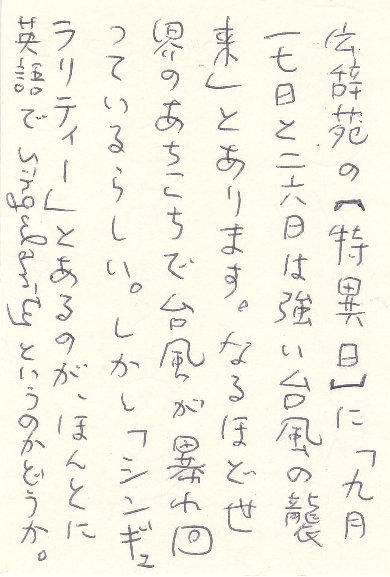 広辞苑の【特異日】に「九月
一七日と二六日は強い台風の襲
来」とあります。なるほど世
界のあちこちで台風が暴れ回
っているらしい。しかし「シンギュ
ラリティー」とあるのが、ほんとに
英語でsingularityというのかどうか。